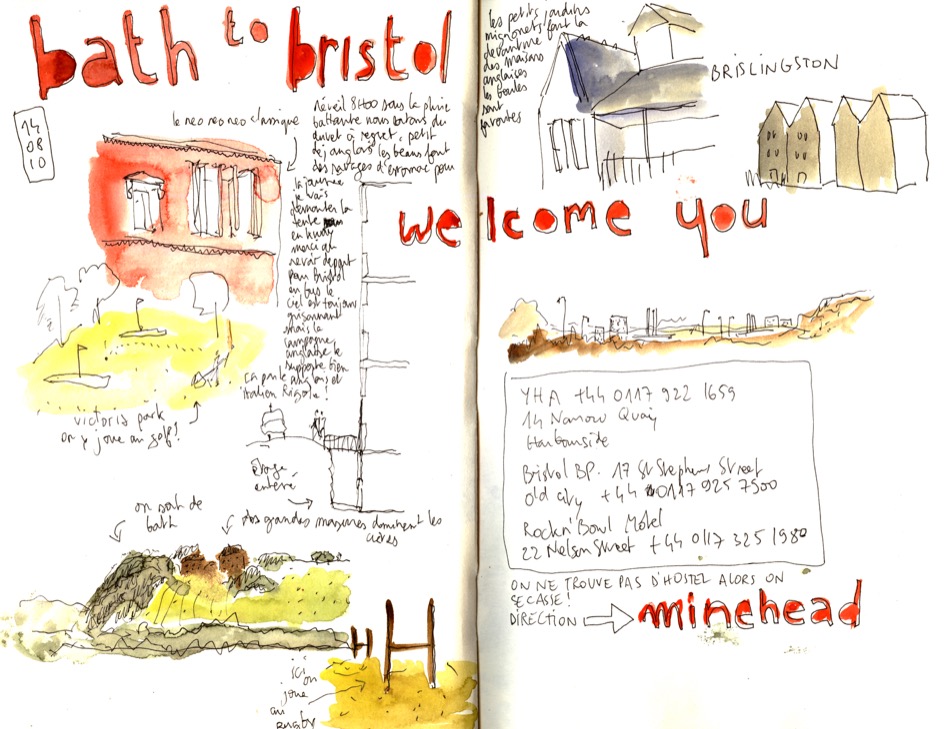 bath to bristol
14
08
10
le neo neo neo classique
réveil 8H00 sous la pluie
battante nous sortons du
duvet à regret. petit
dej anglais les beans font
des ravages d'énormé pour
la journée
je vais
démonter la
tente
en
merci au
revoir départ
pour Bristol
en bus le
ciel est toujours
grisonnant
mais la
campagne
anglaise le
supporte bien
victoria park
on y joue au golf!
étage
enterré
on sort de
bath
des grandes maisons dominent les
ici
on
joue
au
Rugby
les petits jardins
mignonets font la
devanture
des maisons
anglaises
les boules
sont
favorites
BRISLINGSTON
welcome you
YHA +44 0117 922 1659
14 Narrow Quay
Harbourside
Bristol BP. 17 St Stephens Street
old city +44 0117 925 7500
Rockn'Bowl Motel
22 Nelson Street +44 0117 325 1980
ON NE TROUVE PAS D'HOSTEL ALORS ON
SE CASSE!
DIRECTION minehead